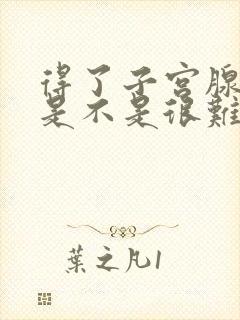 得了子宫腺
是不是很難
葉之凡1